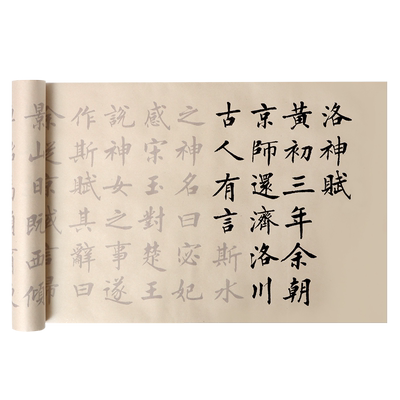 洛神賦
黃初三年余朝
京師還濟洛川
古人有言斯水
之神名曰宓妃
感宋玉對楚王
說神女之事遂
作斯賦其辭曰